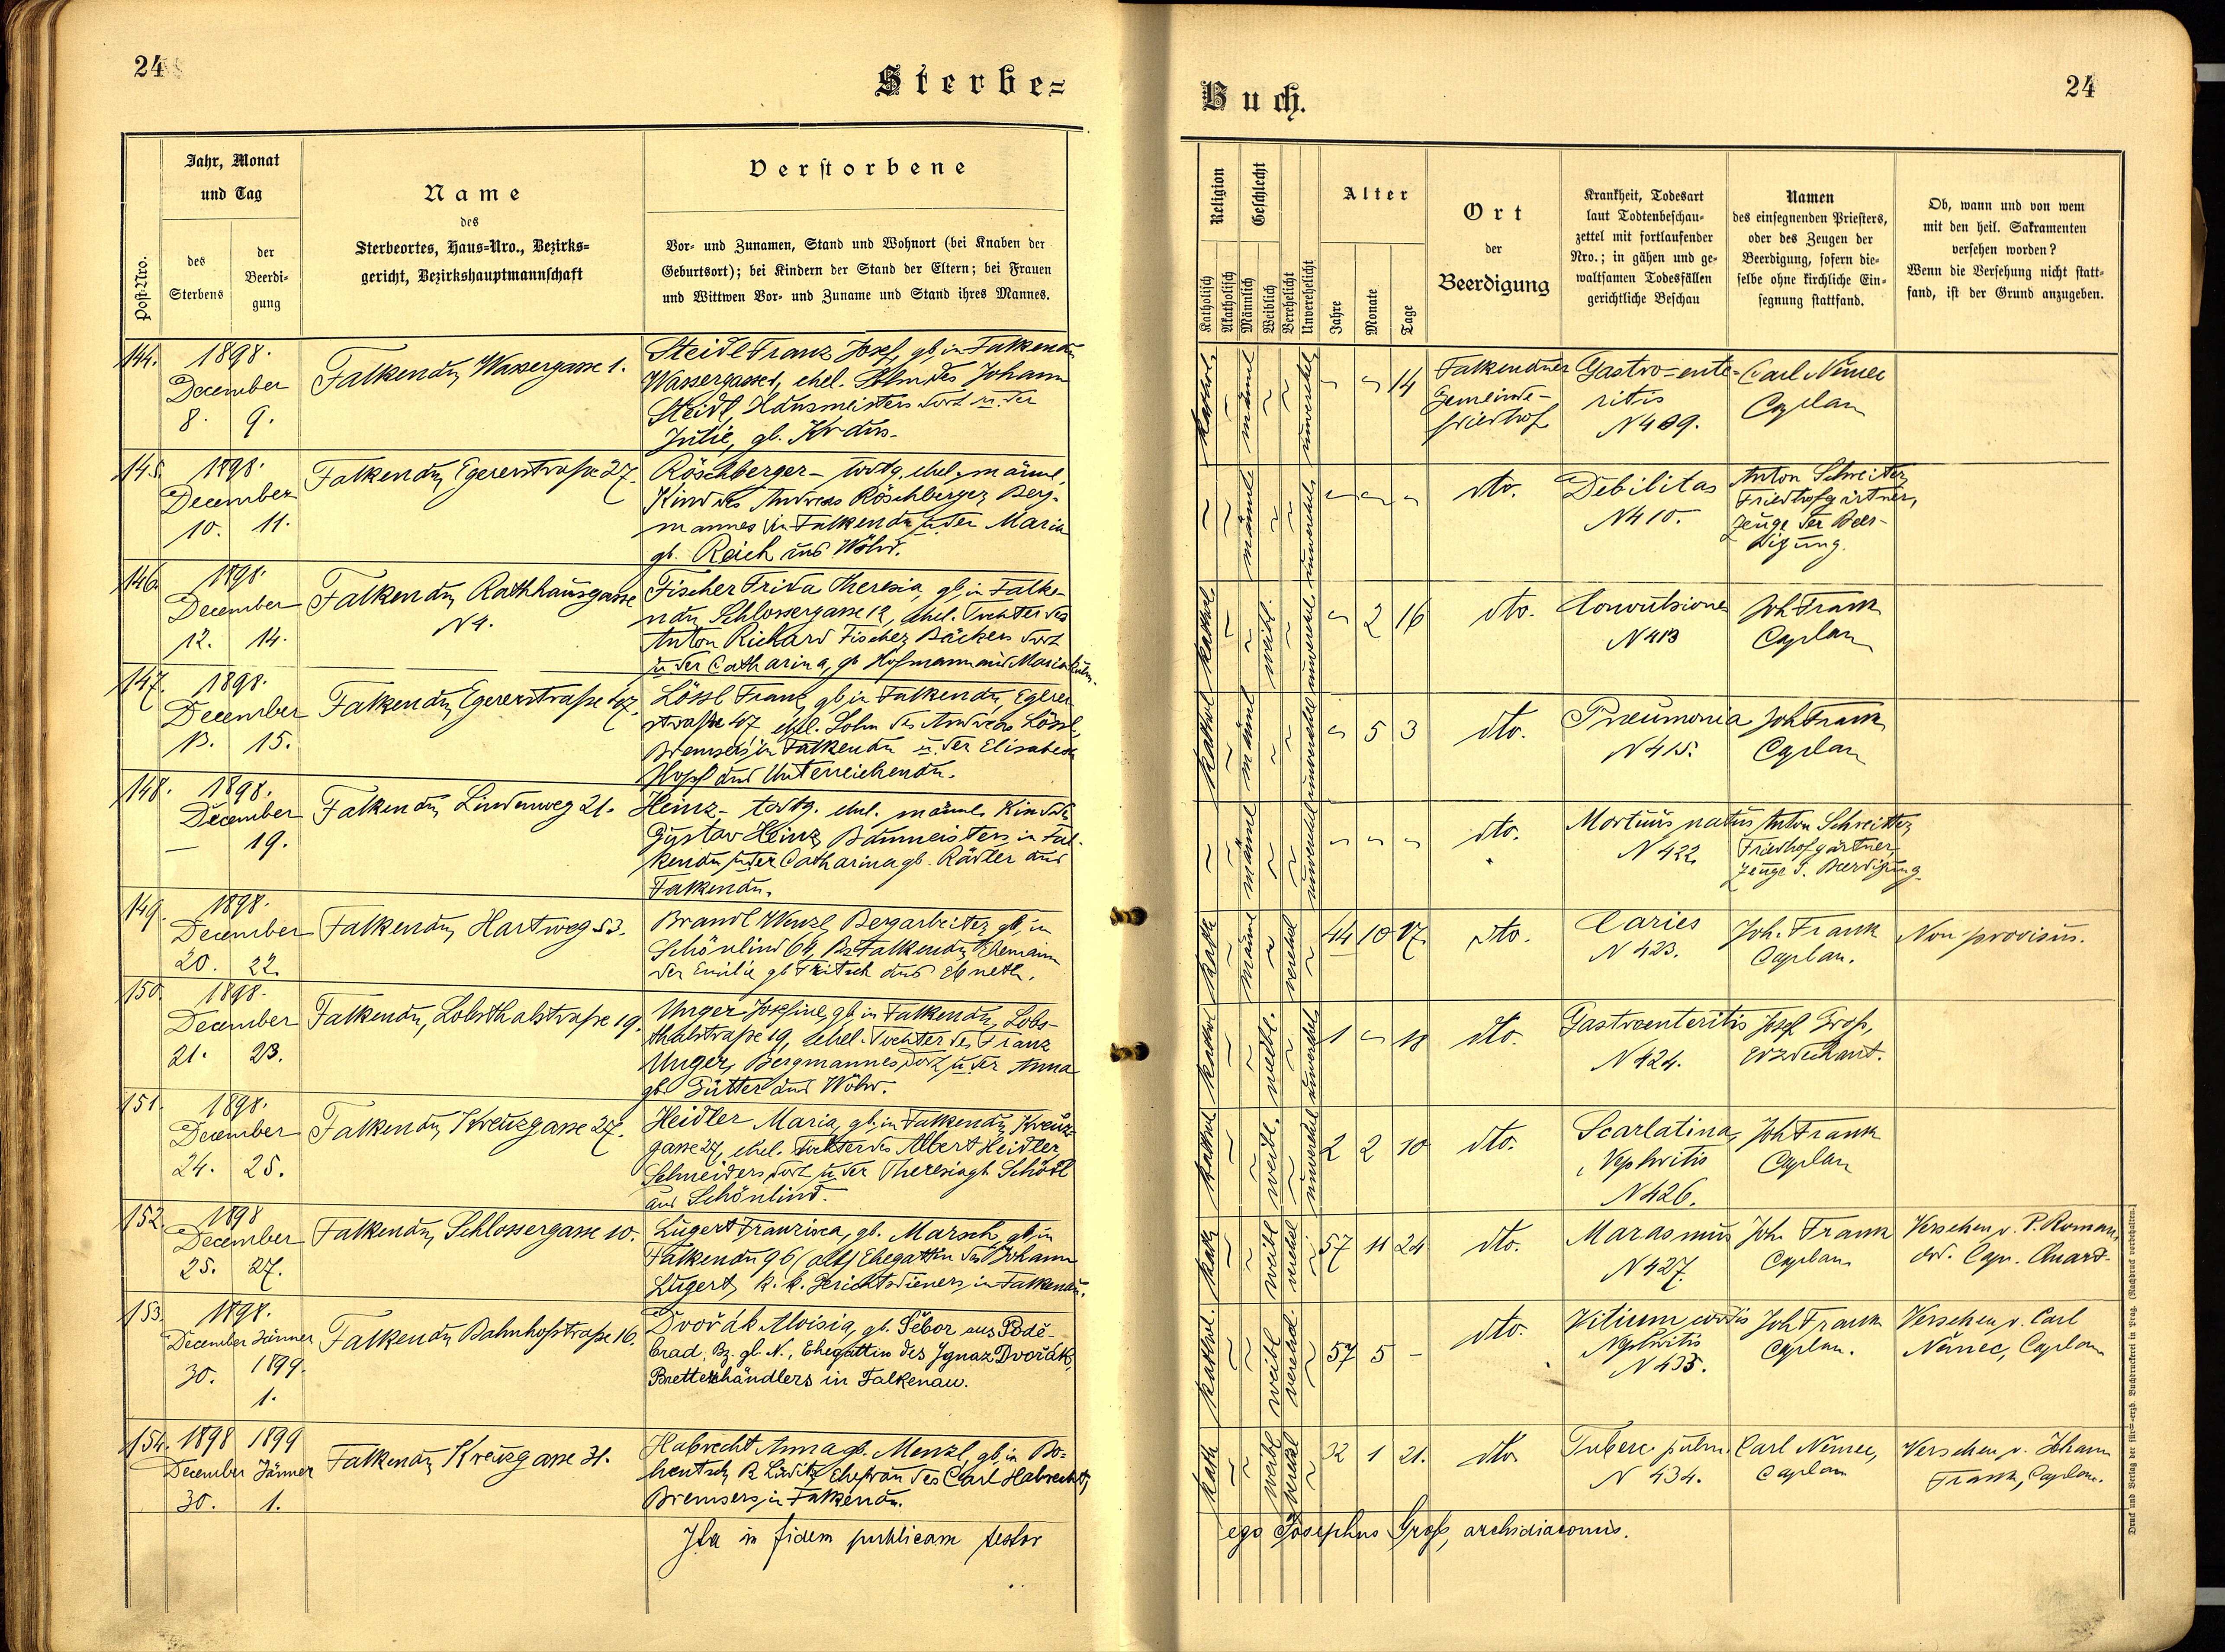 24
Sterbe=
Jahr, Monat
und Tag
Post-Nro.
des
Sterbens
der
Beerdi-
gung
Name
des
Sterbeortes, Haus=Nro., Bezirks=
gericht, Bezirkshauptmannschaft
Verstorbene
Vor- und Zunamen, Stand und Wohnort (bei Knaben der
Geburtsort); bei Kindern der Stand der Eltern; bei Frauen
und Wittwen Vor- und Zuname und Stand ihres Mannes.
144. 1898.
December
8. 9.
Falkenau, Wassergasse 1.
Steidl Franz Josef, gb. in Falkenau
Wassergasse 1, ehel. Sohn des Johann
Steidl, Hausmeisters dort u. der
Julie, gb. Kraus.
145. 1898.
December
10. 11.
Falkenau, Egererstraße 27.
Röschberger – todtg. ehel. männl.
Kind des Andreas Röschberger, Berg-
mannes in Falkenau u. der Maria
gb. Reich aus Wöhr.
146. 1898.
December
12. 14.
Falkenau, Rathhausgasse
N 4.
Fischer Frida Theresia, gb. in Falke-
nau, Schlossergasse 12, ehel. Tochter des
Anton Richard Fischer, Bäckers dort
u. der Catharina, gb. Hofmann aus Mariakulm.
147. 1898.
December
13. 15.
Falkenau, Egererstraße 47.
Lössl Franz, gb. in Falkenau, Egerer
straße 47, ehel. Sohn des Andreas Lössl,
Bremsers in Falkenau u. der Elisabeth
Hopf aus Unterreichenau.
148. 1898.
December
— 19.
Falkenau, Lindenweg 21.
Heinz – todtg. ehel. männl. Kind des
Gustav Heinz, Baumeisters in Fal-
kenau u. der Catharina gb. Rädler aus
Falkenau.
149. 1898.
December
20. 22.
Falkenau, Hartweg 53.
Brandl Wenzl, Bergarbeiter, gb. in
Schönlind 64, Bz. Falkenau, Ehemann
der Emilie gb. Fritsch aus Ebmeth.
150. 1898.
December
21. 23.
Falkenau, Lobsthalstraße 19.
Unger Josefine, gb. in Falkenau, Lobs-
thalstraße 19, ehel. Tochter des Franz
Unger, Bergmannes dort u. der Anna
gb. Gütter aus Wöhr.
151. 1898.
December
24. 25.
Falkenau, Kreuzgasse 27.
Heidler Maria, gb. in Falkenau, Kreuz-
gasse 27, ehel. Tochter des Albert Heidler,
Schneiders dort u. der Theresia gb. Schödl
aus Schönlind.
152. 1898
December
25. 27.
Falkenau, Schlossergasse 10.
Lugert Franzisca, gb. Marsch, gb. in
Falkenau 96 (alt) Ehegattin des Johann
Lugert, k. k. Gerichtsdieners, in Falkenau.
153. 1898.
December Jänner
30. 1899.
1.
Falkenau, Bahnhofstraße 16.
Dvořák Aloisia, gb. Šebor aus Podě-
brad, Bz. gl. N., Ehegattin des Ignaz Dvořák,
Bretterhändlers in Falkenau.
154. 1898 1899
December Jänner
30. 1.
Falkenau, Kreuzgasse 31.
Habrecht Anna gb. Menzl, gb. in Bo-
hentsch, Ehefrau des Carl Habrecht,
Bremsers in Falkenau.
Ita in fidem publicam testor
Buch.
24
Religion
Geschlecht
Katholisch
Akatholisch
Männlich
Weiblich
Verehelicht
Unverehelicht
Alter
Jahre
Monate
Tage
Ort
der
Beerdigung
Krankheit, Todesart
laut Todtenbeschau-
zettel mit fortlaufender
Nro.; in gähen und ge-
waltsamen Todesfällen
gerichtliche Beschau
Namen
des einsegnenden Priesters,
oder des Zeugen der
Beerdigung, sofern die-
selbe ohne kirchliche Ein-
segnung stattfand.
Ob, wann und von wem
mit den heil. Sakramenten
versehen worden?
Wenn die Versehung nicht statt=
fand, ist der Grund anzugeben.
kathol. männl unverehel. 14
Falkenauer
Gemeinde-
friedhof
Gastro=ente-
ritis
N 409.
Carl Němec
Caplan
männl unverehel.
dto.
Debilitas
N 410.
Anton Schreiter,
Friedhofgärtner,
Zeuge der Beer-
digung.
kathol. weibl. unverehel. 2 16
dto.
Convulsiones
N 413
Joh Frank
Caplan
kathol männl unverehel 5 3
dto.
Pneumonia
N 415.
Joh Frank
Caplan
männl unverehel
dto.
Mortuus natus
N 422.
Anton Schreitter,
Friedhofgärtner,
Zeuge d. Beerdigung.
kath männl verehel 44 10 17.
dto.
Caries
N 423.
Joh. Frank
Caplan.
Non provisus.
kathol weibl. unverehel. 1 18
dto.
Gastroenteritis
N 424.
Josef Groß,
Erzdechant.
kathol weibl. unverehel 2 2 10
dto.
Scarlatina,
Nephritis
N 426.
Joh Frank
Caplan
kath weibl verehel 57 11 24
dto.
Marasmus
N 427.
Joh. Frank
Caplan
Versehen v. P. Roman,
ord. Cap. Quard.
kathol. weibl verehel. 57 5 –
dto.
Vitium cordis
Nephritis
N 435.
Joh Frank
Caplan.
Versehen v. Carl
Němec, Caplan
kath weibl verehel 32 1 21.
dto
Tuberc pulm.
N 434.
Carl Němec,
Caplan
Versehen v. Johann
Frank, Caplan.
ego Josephus Groß, archidiaconus.
Druck und Verlag der fürst-erzb. Buchdruckerei in Prag. (Nachdruck vorbehalten.)